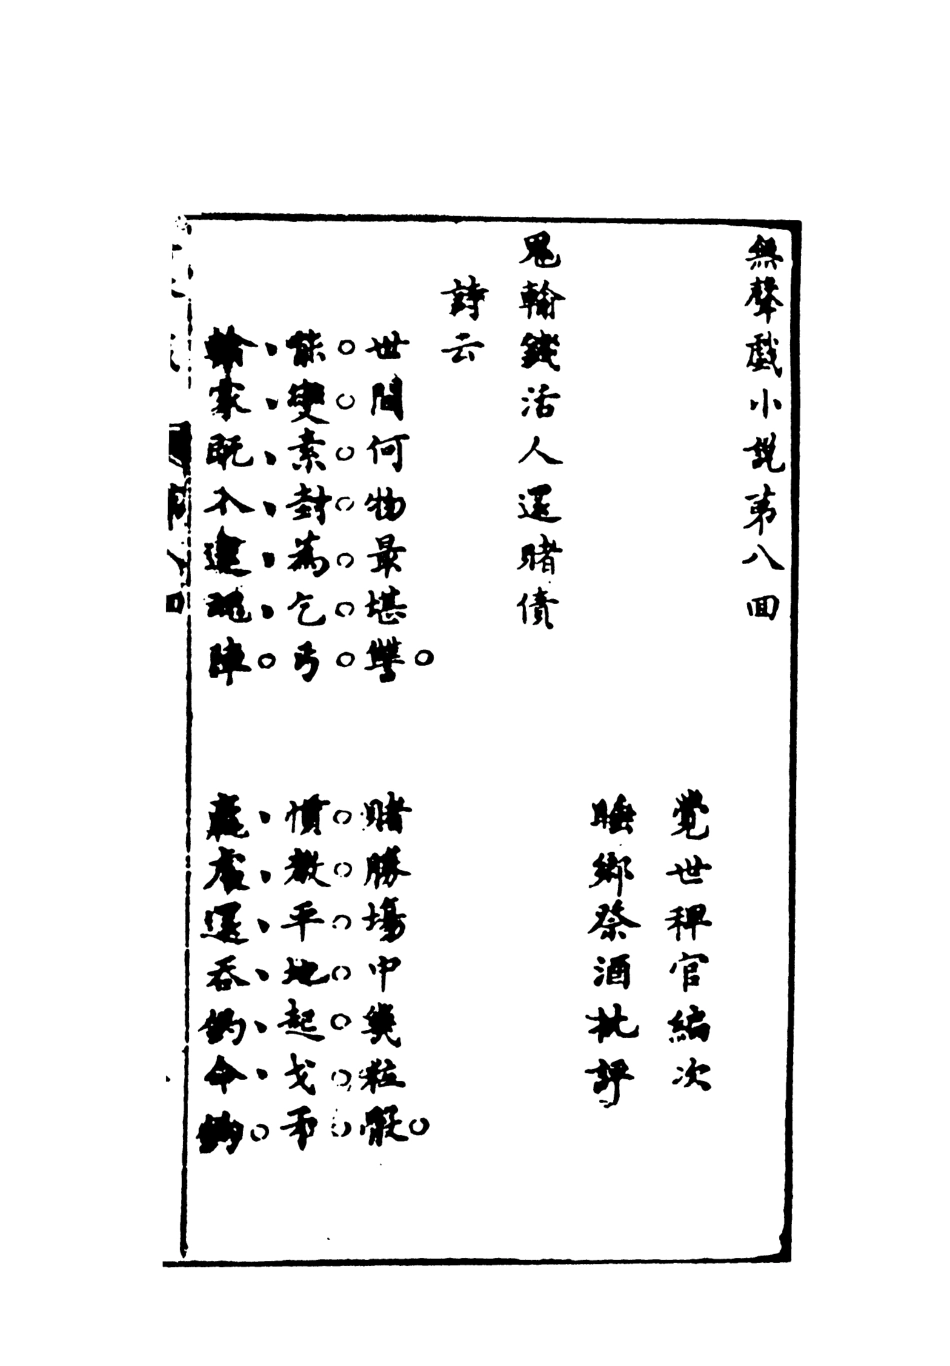 無聲戲小說第八回
覺世稗官編次
睡鄉祭酒批評
鬼輸錢活人還賭債
詩云
世間何物最堪讐。賭勝場中幾粒骰。
能變素封為乞丐。慣教平地起戈矛
輸家既入迷魂陣。贏處還吞鈎命鈎。